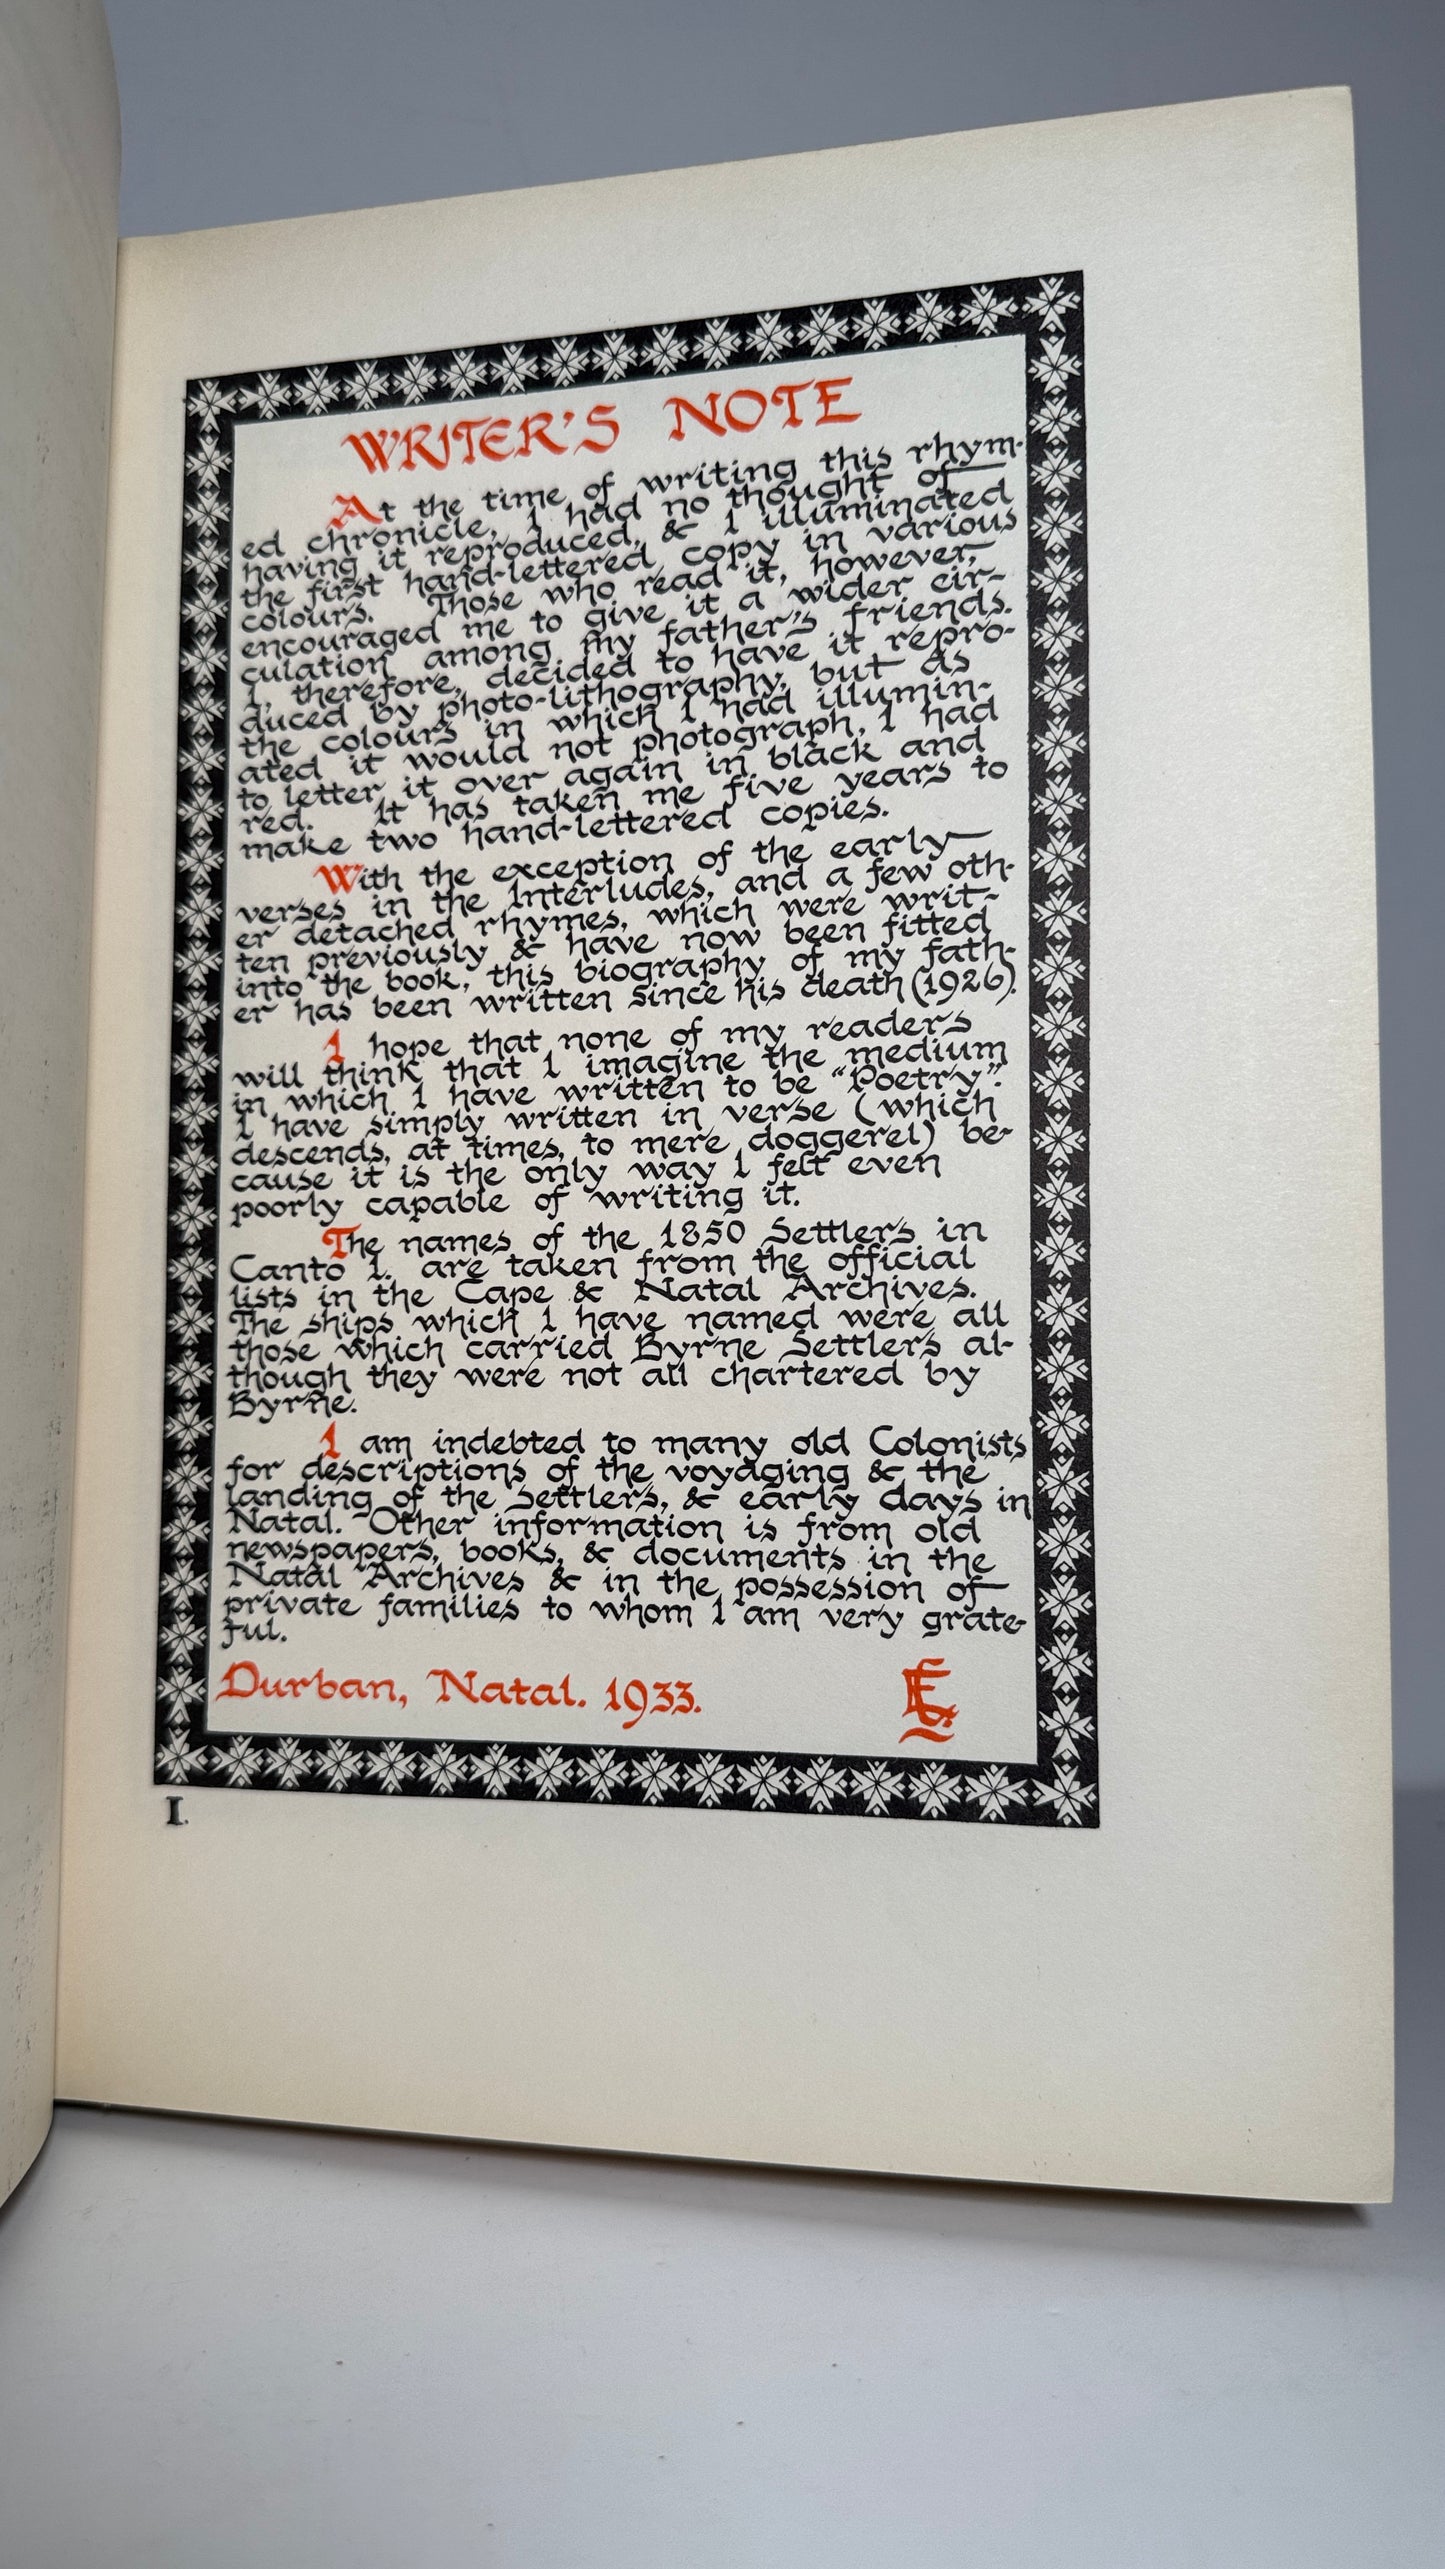 WRITER'S NOTE
At the time of writing this rhym-
ed chronicle, I had no thought of
having it reproduced, & I illuminated
the first hand-lettered copy in various
colours. Those who read it, however,
encouraged me to give it a wider cir-
culation among my father's friends.
I, therefore, decided to have it repro-
duced by photo-lithography, but as
the colours in which I had illumin-
ated it would not photograph, I had
to letter it over again in black and
red. It has taken me five years to
make two hand-lettered copies.
With the exception of the early
verses in the Interludes, and a few oth-
er detached rhymes, which were writ-
ten previously & have now been fitted
into the book, this biography of my fath-
er has been written since his death (1926).
I hope that none of my readers
will think that I imagine the medium
in which I have written to be "Poetry".
I have simply written in verse (which
descends, at times, to mere doggerel) be-
cause it is the only way I felt even
poorly capable of writing it.
The names of the 1850 Settlers in
Canto 1. are taken from the official
lists in the Cape & Natal Archives.
The ships which I have named were all
those which carried Byrne Settlers al-
though they were not all chartered by
Byrne.
I am indebted to many old Colonists
for descriptions of the voyaging & the
landing of the Settlers, & early days in
Natal. Other information is from old
newspapers, books, & documents in the
Natal Archives & in the possession of
private families to whom I am very grate-
ful.
Durban, Natal. 1933.
I.